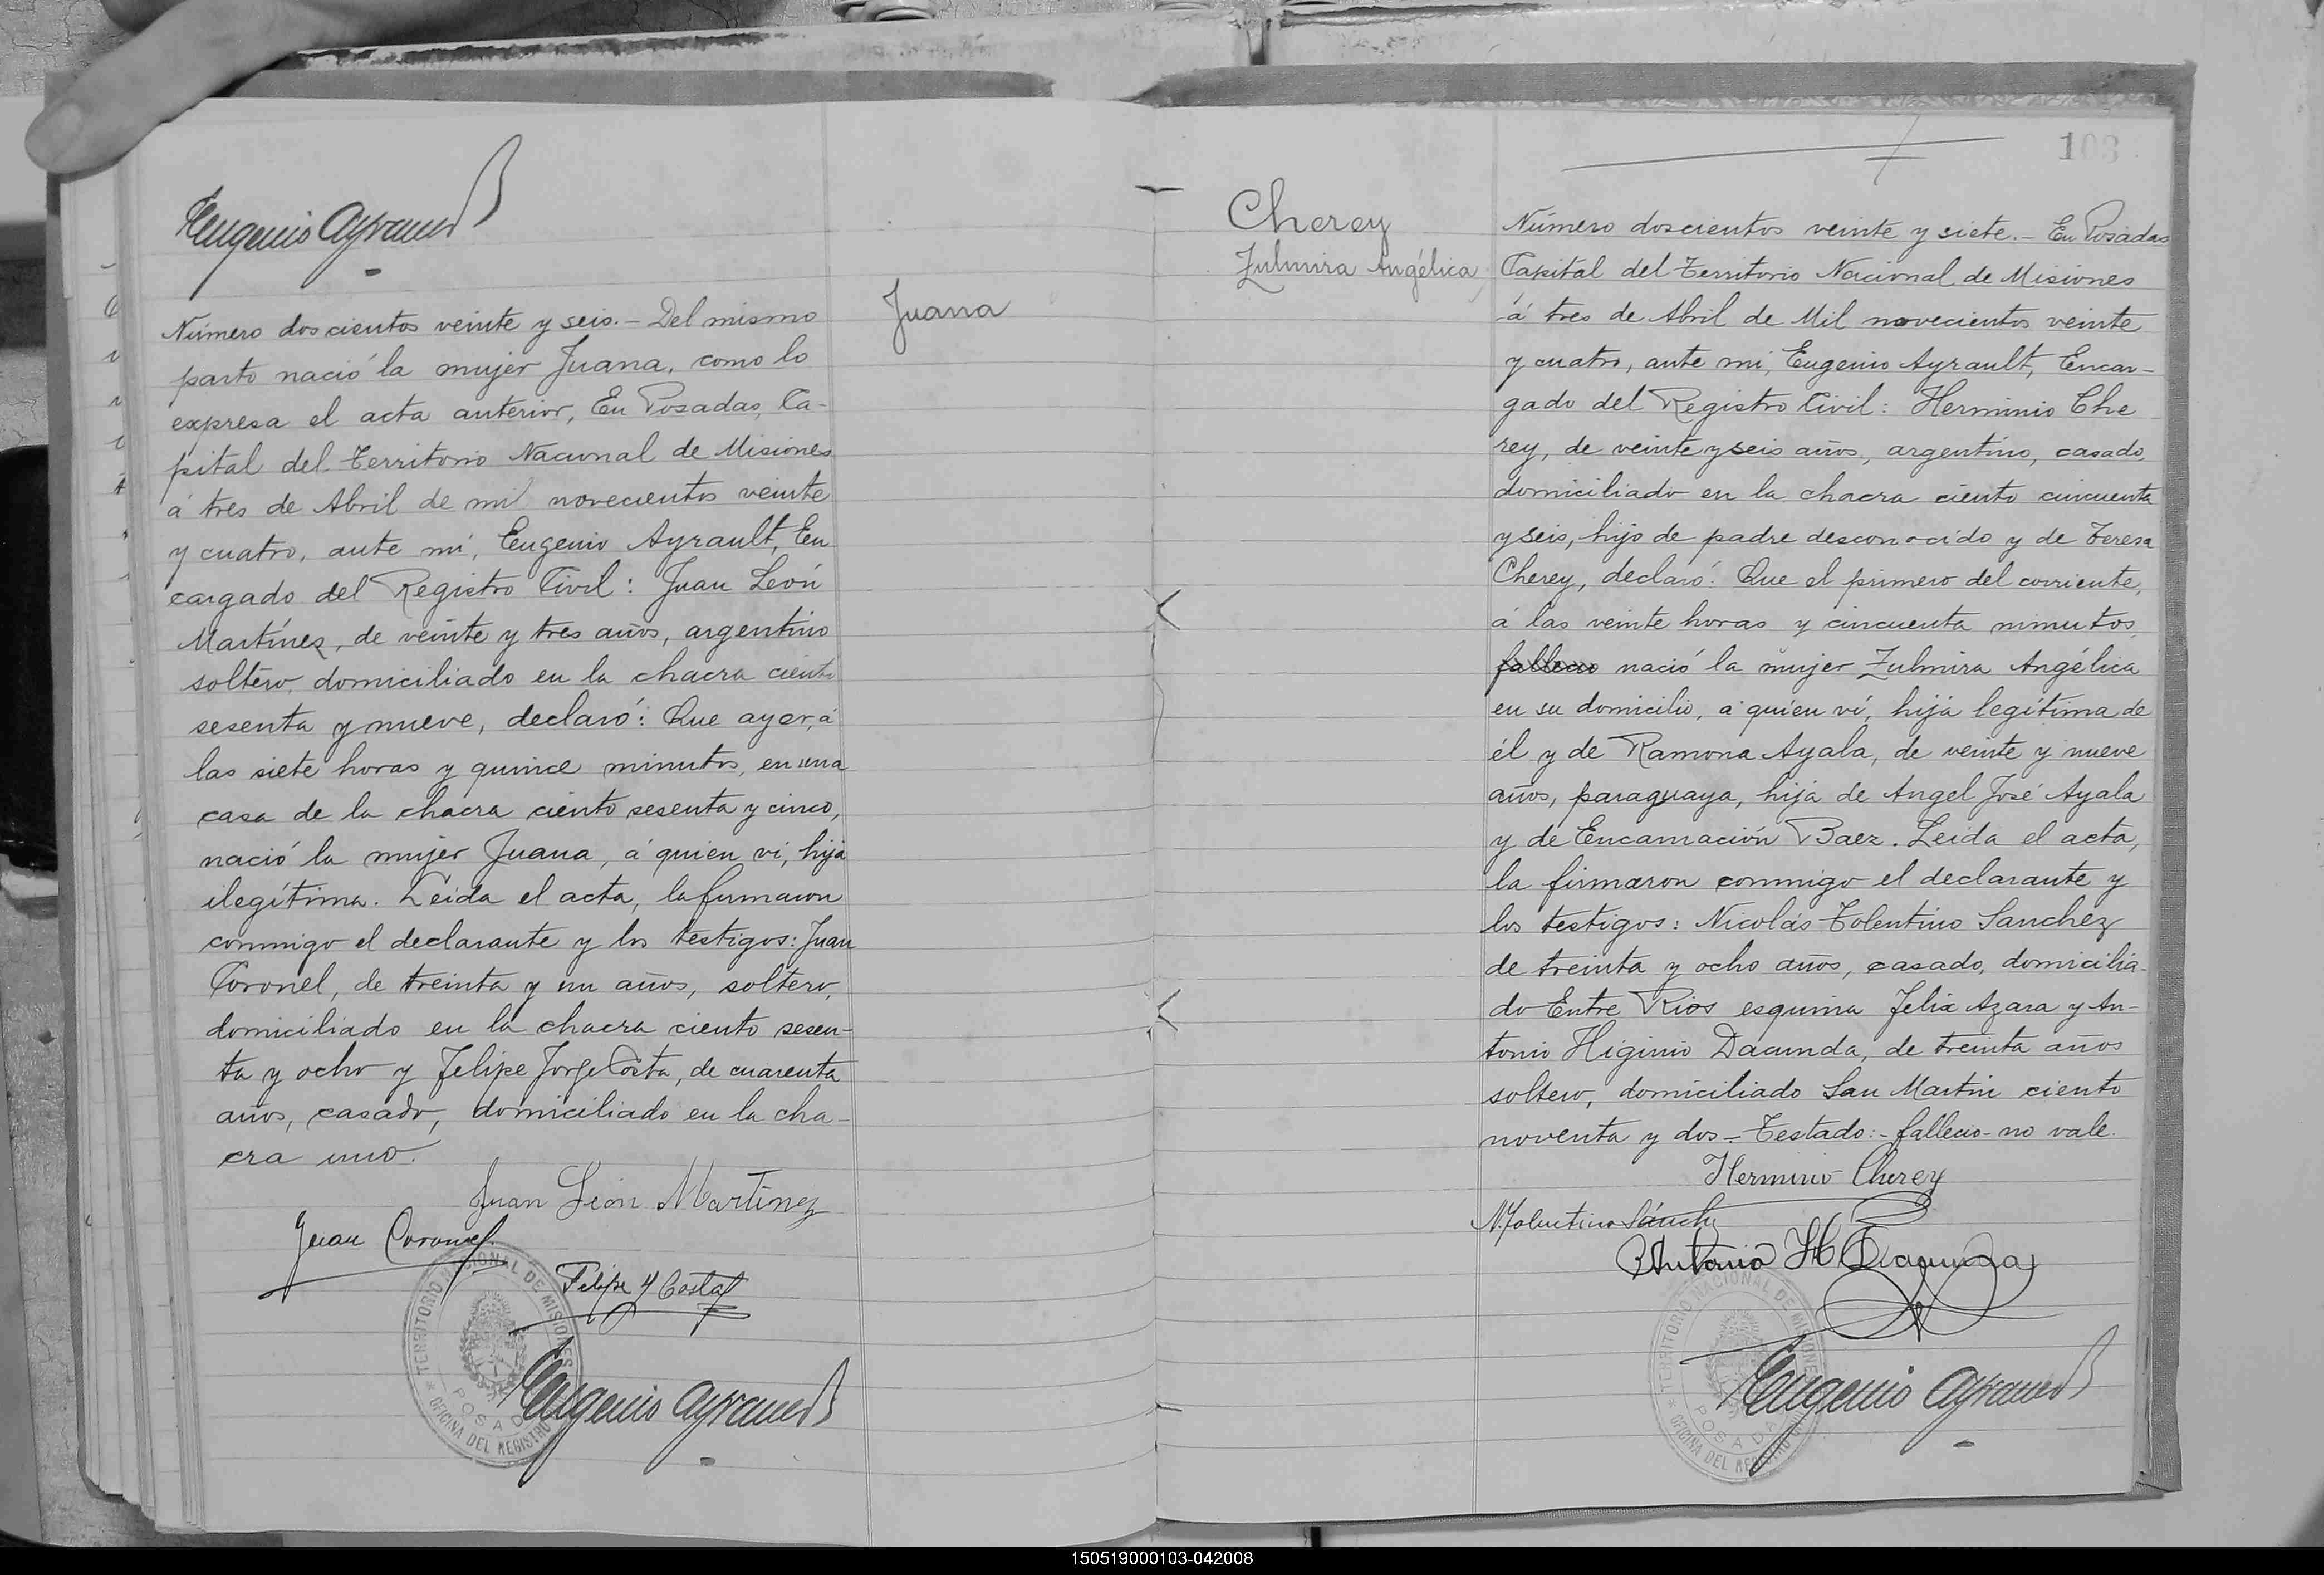 Eugenio Ayrault
Juana
Número doscientos veinte y seis.- Del mismo
parto nació la mujer Juana, como lo
expresa el acta anterior, En Posadas, Ca-
pital del Territorio Nacional de Misiones
á tres de Abril de mil novecientos veinte
y cuatro, ante mí, Eugenio Ayrault, En
cargado del Registro Civil: Juan León
Martínez, de veinte y tres años, argentino
soltero, domiciliado en la chacra ciento
sesenta y nueve, declaró: Que ayer, á
las siete horas y quince minutos, en una
casa de la chacra ciento sesenta y cinco,
nació la mujer Juana, á quien vi, hija
ilegítima. Leida el acta, la firmaron
conmigo el declarante y los testigos: Juan
Coronel, de treinta y un años, soltero,
domiciliado en la chacra ciento sesen-
ta y ocho y Felipe Jorge Costa, de cuarenta
años, casado, domiciliado en la cha-
cra uno.
Juan León Martínez
Juan Coronel
Felipe J Costa
TERRITORIO NACIONAL DE MISIONES
POSADAS
OFICINA DEL REGISTRO
Eugenio Ayrault
103
Cherey
Zulmira Angélica
Número doscientos veinte y siete.- En Posadas
Capital del Territorio Nacional de Misiones
á tres de Abril de Mil novecientos veinte
y cuatro, ante mi, Eugenio Ayrault, Encar-
gado del Registro Civil: Herminio Che
rey, de veinte y seis años, argentino, casado,
domiciliado en la chacra ciento cincuenta
y seis, hijo de padre desconocido y de Teresa
Cherey, declaró: Que el primero del corriente,
á las veinte horas y cincuenta minutos,
fallecio nació la mujer Zulmira Angélica
en su domicilio, a quien ví, hija legítima de
él y de Ramona Ayala, de veinte y nueve
años, paraguaya, hija de Angel José Ayala
y de Encarnación Baez. Leida el acta,
la firmaron conmigo el declarante y
los testigos: Nicolás Tolentino Sanchez
de treinta y ocho años, casado, domicilia-
do Entre Rios esquina Felix Azara y An-
tonio Higinio Dacunda, de treinta años
soltero, domiciliado San Martin ciento
noventa y dos = Testado:- fallecio- no vale.
Herminio Cherey
N. Tolentino Sánchz
Antonio H Dacunda
TERRITORIO NACIONAL DE MISIONES
POSADAS
OFICINA DEL REGISTRO
Eugenio Ayrault
150519000103-042008